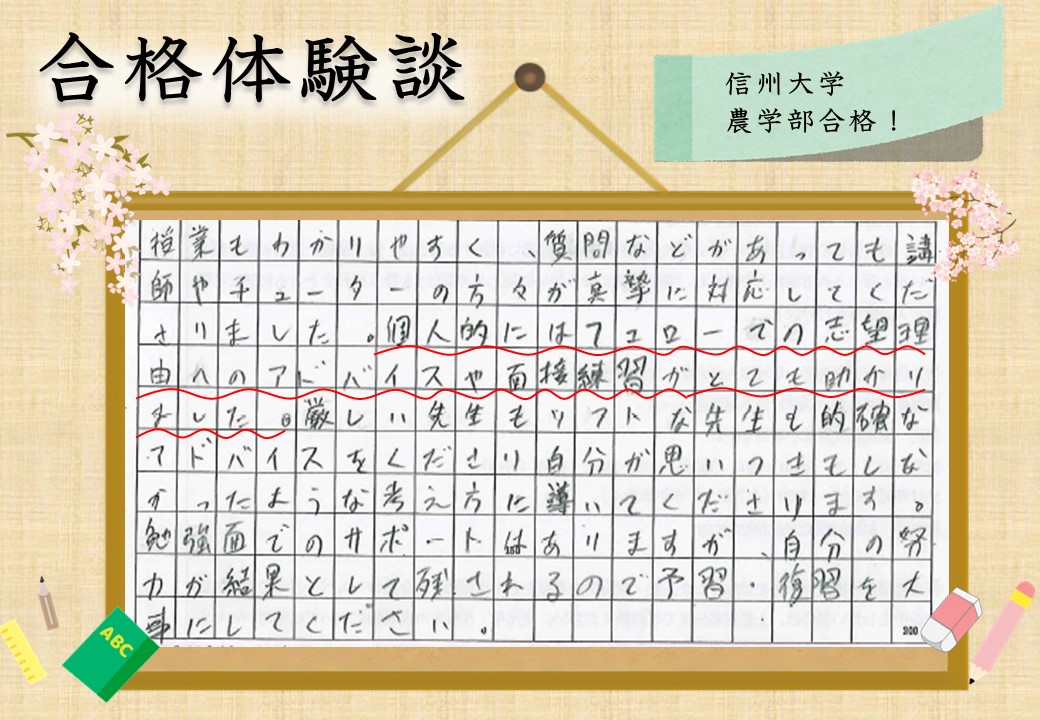 合格体験談
信州大学
農学部合格！
授業もわかりやすく、質問などがあっても講
師やチューターの方々が真摯に対応してくだ
さりました。個人的にはフェローでの志望理
由へのアドバイスや面接練習がとても助かり
ました。厳しい先生もソフトな先生も的確な
アドバイスをくださり自分が思いつきもしな
かったような考え方に導いてくださります。
勉強面でのサポートはありますが、自分の努
力が結果として残されるので予習・復習を大
事にしてください。
200
ABC